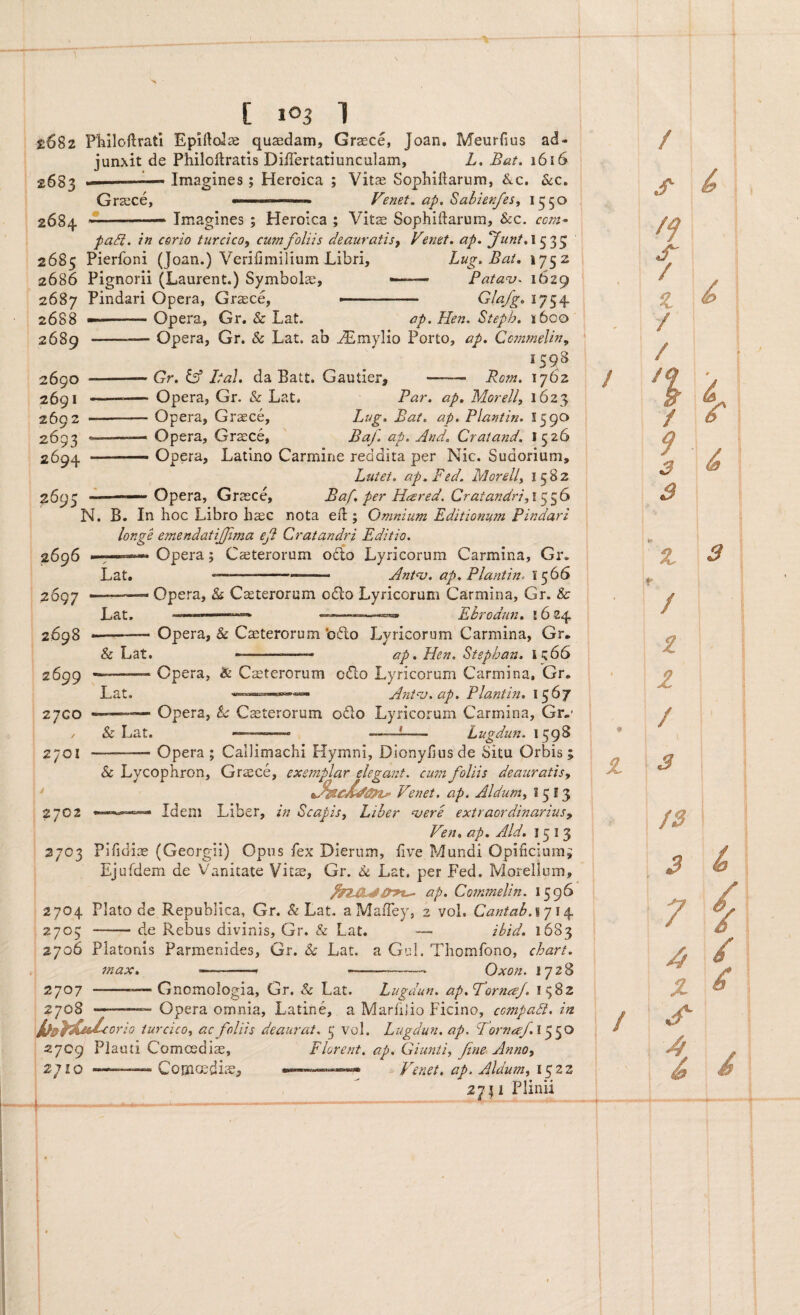 [ 103 ]
2682 Philoſtrati Epiſtolæ quædam, Græcé, Joan. Meurſius ad-
junxit de Philoſtratis Diſſertatiunculam, L. Bat. 1616
2683 ——— Imagines ; Heroica ; Vitæ Sophiſtarum, &c. &c.
Græcé, ——— Venet. ap. Sabienſes, 1550
2684 ——— Imagines ; Heroica ; Vitæ Sophiſtarum, &c. com-
pact. in corio turcico, cum foliis deauratis, Venet. ap. Junt. 1535
2685 Pierſoni (Joan.) Veriſimilium Libri, Lug. Bat. 1752
2686 Pignorii (Laurent.) Symbolæ, —— Patav. 1629
2687 Pindari Opera, Græcé, ——— Glaſg. 1754
2688 ——— Opera, Gr. & Lat. ap. Hen. Steph. 1600
2689 ——— Opera, Gr. & Lat. ab Æmylio Porto, ap. Commelin,
1598
2690 ——— Gr. & Ital. da Batt. Gautier, —— Rom. 1762
2691 ——— Opera, Gr. & Lat. Par. ap. Morell, 1623
2692 ——— Opera, Græcé, Lug. Bat. ap. Plantin. 1590
2693 ——— Opera, Græcé, Baſ. ap. And. Cratand. 1526
2694 ——— Opera, Latino Carmine reddita per Nic. Sudorium,
Lutet. ap. Fed. Morell, 1582
2695 ——— Opera, Græcé, Baſ. per Hæred. Cratandri, 1556
N. B. In hoc Libro hæc nota eſt ; Omnium Editionum Pindari
longè emendatiſſima eſt Cratandri Editio.
2696 ——— Opera ; Cæterorum octo Lyricorum Carmina, Gr.
Lat. ——— Antv. ap. Plantin. 1566
2697 ——— Opera, & Cæterorum octo Lyricorum Carmina, Gr. &
Lat. ——— ——— Ebrodun. 1624
2698 ——— Opera, & Cæterorum octo Lyricorum Carmina, Gr.
& Lat. ——— ap. Hen. Stephan. 1566
2699 ——— Opera, & Cæterorum octo Lyricorum Carmina, Gr.
Lat. ——— Antv. ap. Plantin. 1567
2700 ——— Opera, & Cæterorum octo Lyricorum Carmina, Gr.
& Lat. ——— ——— Lugdun. 1598
2701 ——— Opera ; Callimachi Hymni, Dionyſius de Situ Orbis ;
& Lycophron, Græcé, exemplar elegant. cum foliis deauratis,
Venet. ap. Aldum, 1513
2702 ——— Idem Liber, in Scapis, Liber verè extraordinarius,
Ven. ap. Ald. 1513
2703 Piſidiæ (Georgii) Opus ſex Dierum, ſive Mundi Opificium;
Ejuſdem de Vanitate Vitæ, Gr. & Lat. per Fed. Morellum,
ap. Commelin. 1596
2704 Plato de Republica, Gr. & Lat. a Maſſey, 2 vol. Cantab. 1714
2705 —— de Rebus divinis, Gr. & Lat. — ibid. 1683
2706 Platonis Parmenides, Gr. & Lat. a Gul. Thomſono, chart.
max. ——— ——— Oxon. 1728
2707 ——— Gnomologia, Gr. & Lat. Lugdun. ap. Tornæſ. 1582
2708 ——— Opera omnia, Latiné, a Marſilio Ficino, compact. in
corio turcico, ac foliis deaurat. 5 vol. Lugdun. ap. Tornæſ. 1550
2709 Plauti Comœdiæ, Florent. ap. Giunti, ſine Anno,
2710 ——— Comœdiæ, ——— Venet. ap. Aldum, 1522
2711 Plinii